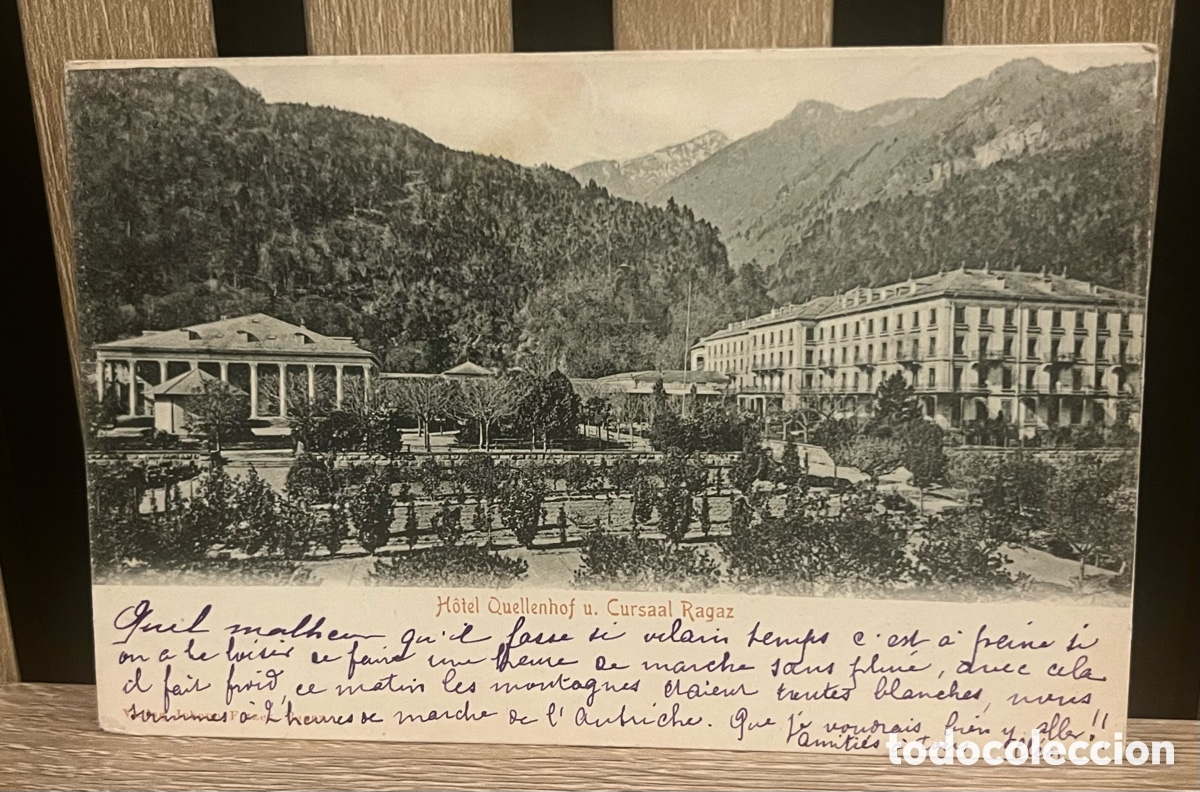 Hôtel Quellenhof u. Cursaal Ragaz
Quil malheur qu'il fasse si vilain temps c'est à peine si
on a le loisir de faire une heure de marche sans pluie, avec cela
il fait froid, ce matin les montagnes étaient toutes blanches, nous
sommes à 2 heures de marche de l'Autriche. Que je voudrais bien y aller!!
amitiés
todocoleccion